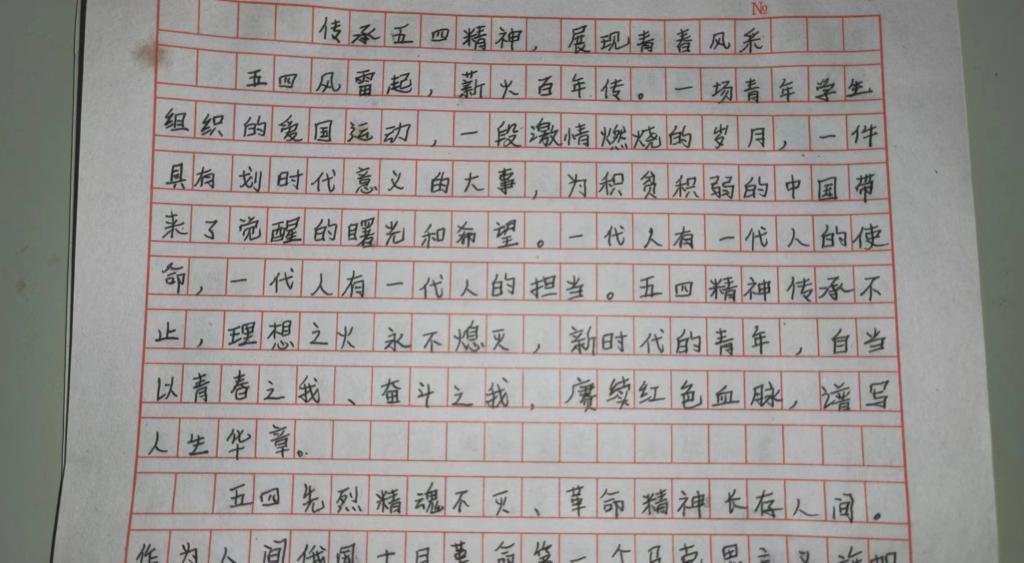 №
传承五四精神，展现青春风采
五四风雷起，薪火百年传。一场青年学生
组织的爱国运动，一段激情燃烧的岁月，一件
具有划时代意义的大事，为积贫积弱的中国带
来了觉醒的曙光和希望。一代人有一代人的使
命，一代人有一代人的担当。五四精神传承不
止，理想之火永不熄灭，新时代的青年，自当
以青春之我、奋斗之我，赓续红色血脉，谱写
人生华章。
五四先烈精魂不灭、革命精神长存人间。
作为人间俄国十月革命第一个马克思主义